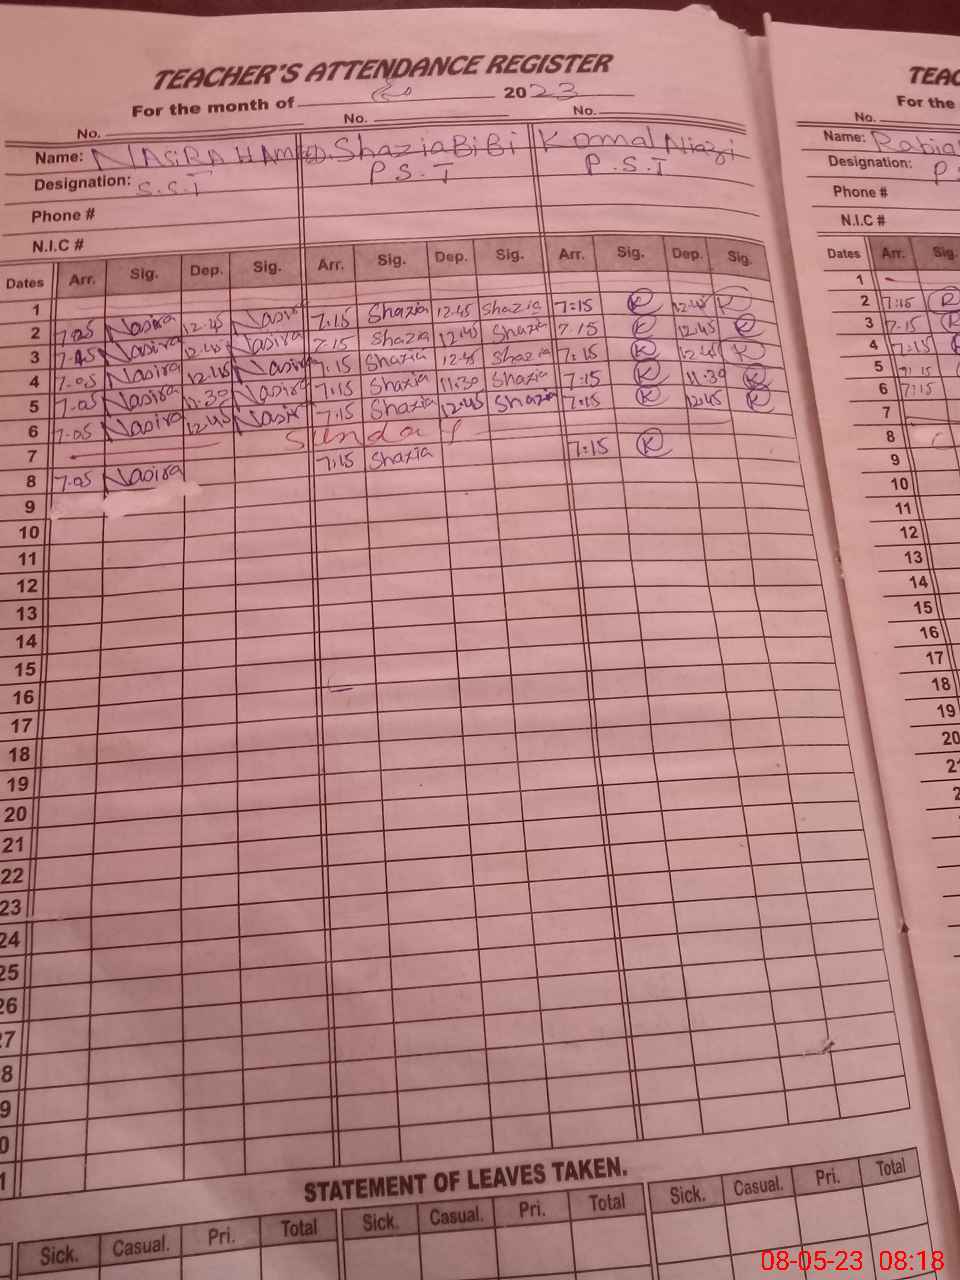 TEACHER'S ATTENDANCE REGISTER
For the month of 2023
No. No. No.
Name: NASIRA HAMEED. Shazia BiBi Komal Niazi
Designation: S.S.T P.S.T P.S.T
Phone #
N.I.C #
Dates Arr. Sig. Dep. Sig. Arr. Sig. Dep. Sig. Arr. Sig. Dep. Sig.
1
2 7.05 Nasira 12.45 Nasira 7.15 Shazia 12.45 Shazia 7:15 K 12.45 K
3 7.45 Nasira 12.45 Nasira 7.15 Shazia 12.45 Shazia 7.15 K 12.45 K
4 7.05 Nasira 12.45 Nasira 7.15 Shazia 12.45 Shazia 7:15 K 12.45 K
5 7.05 Nasira 11.30 Nasira 7:15 Shazia 11.30 Shazia 7:15 K 11.30 K
6 7.05 Nasira 12.45 Nasira 7:15 Shazia 12.45 Shazia 7:15 K 12.45 K
7 Sunday
8 7.05 Nasira 7:15 Shazia 7:15 K
9
10
11
12
13
14
15
16
17
18
19
20
21
22
23
24
25
26
27
8
9
0
1
STATEMENT OF LEAVES TAKEN.
Sick. Casual. Pri. Total Sick. Casual. Pri. Total Sick. Casual. Pri. Total
TEAC
For the
No.
Name: Rabia
Designation: P.S
Phone #
N.I.C #
Dates Arr. Sig.
1
2 7:15 R
3 7:15 R
4 7:15 R
5 7:15
6 7:15
7
8
9
10
11
12
13
14
15
16
17
18
19
20
21
2
08-05-23 08:18